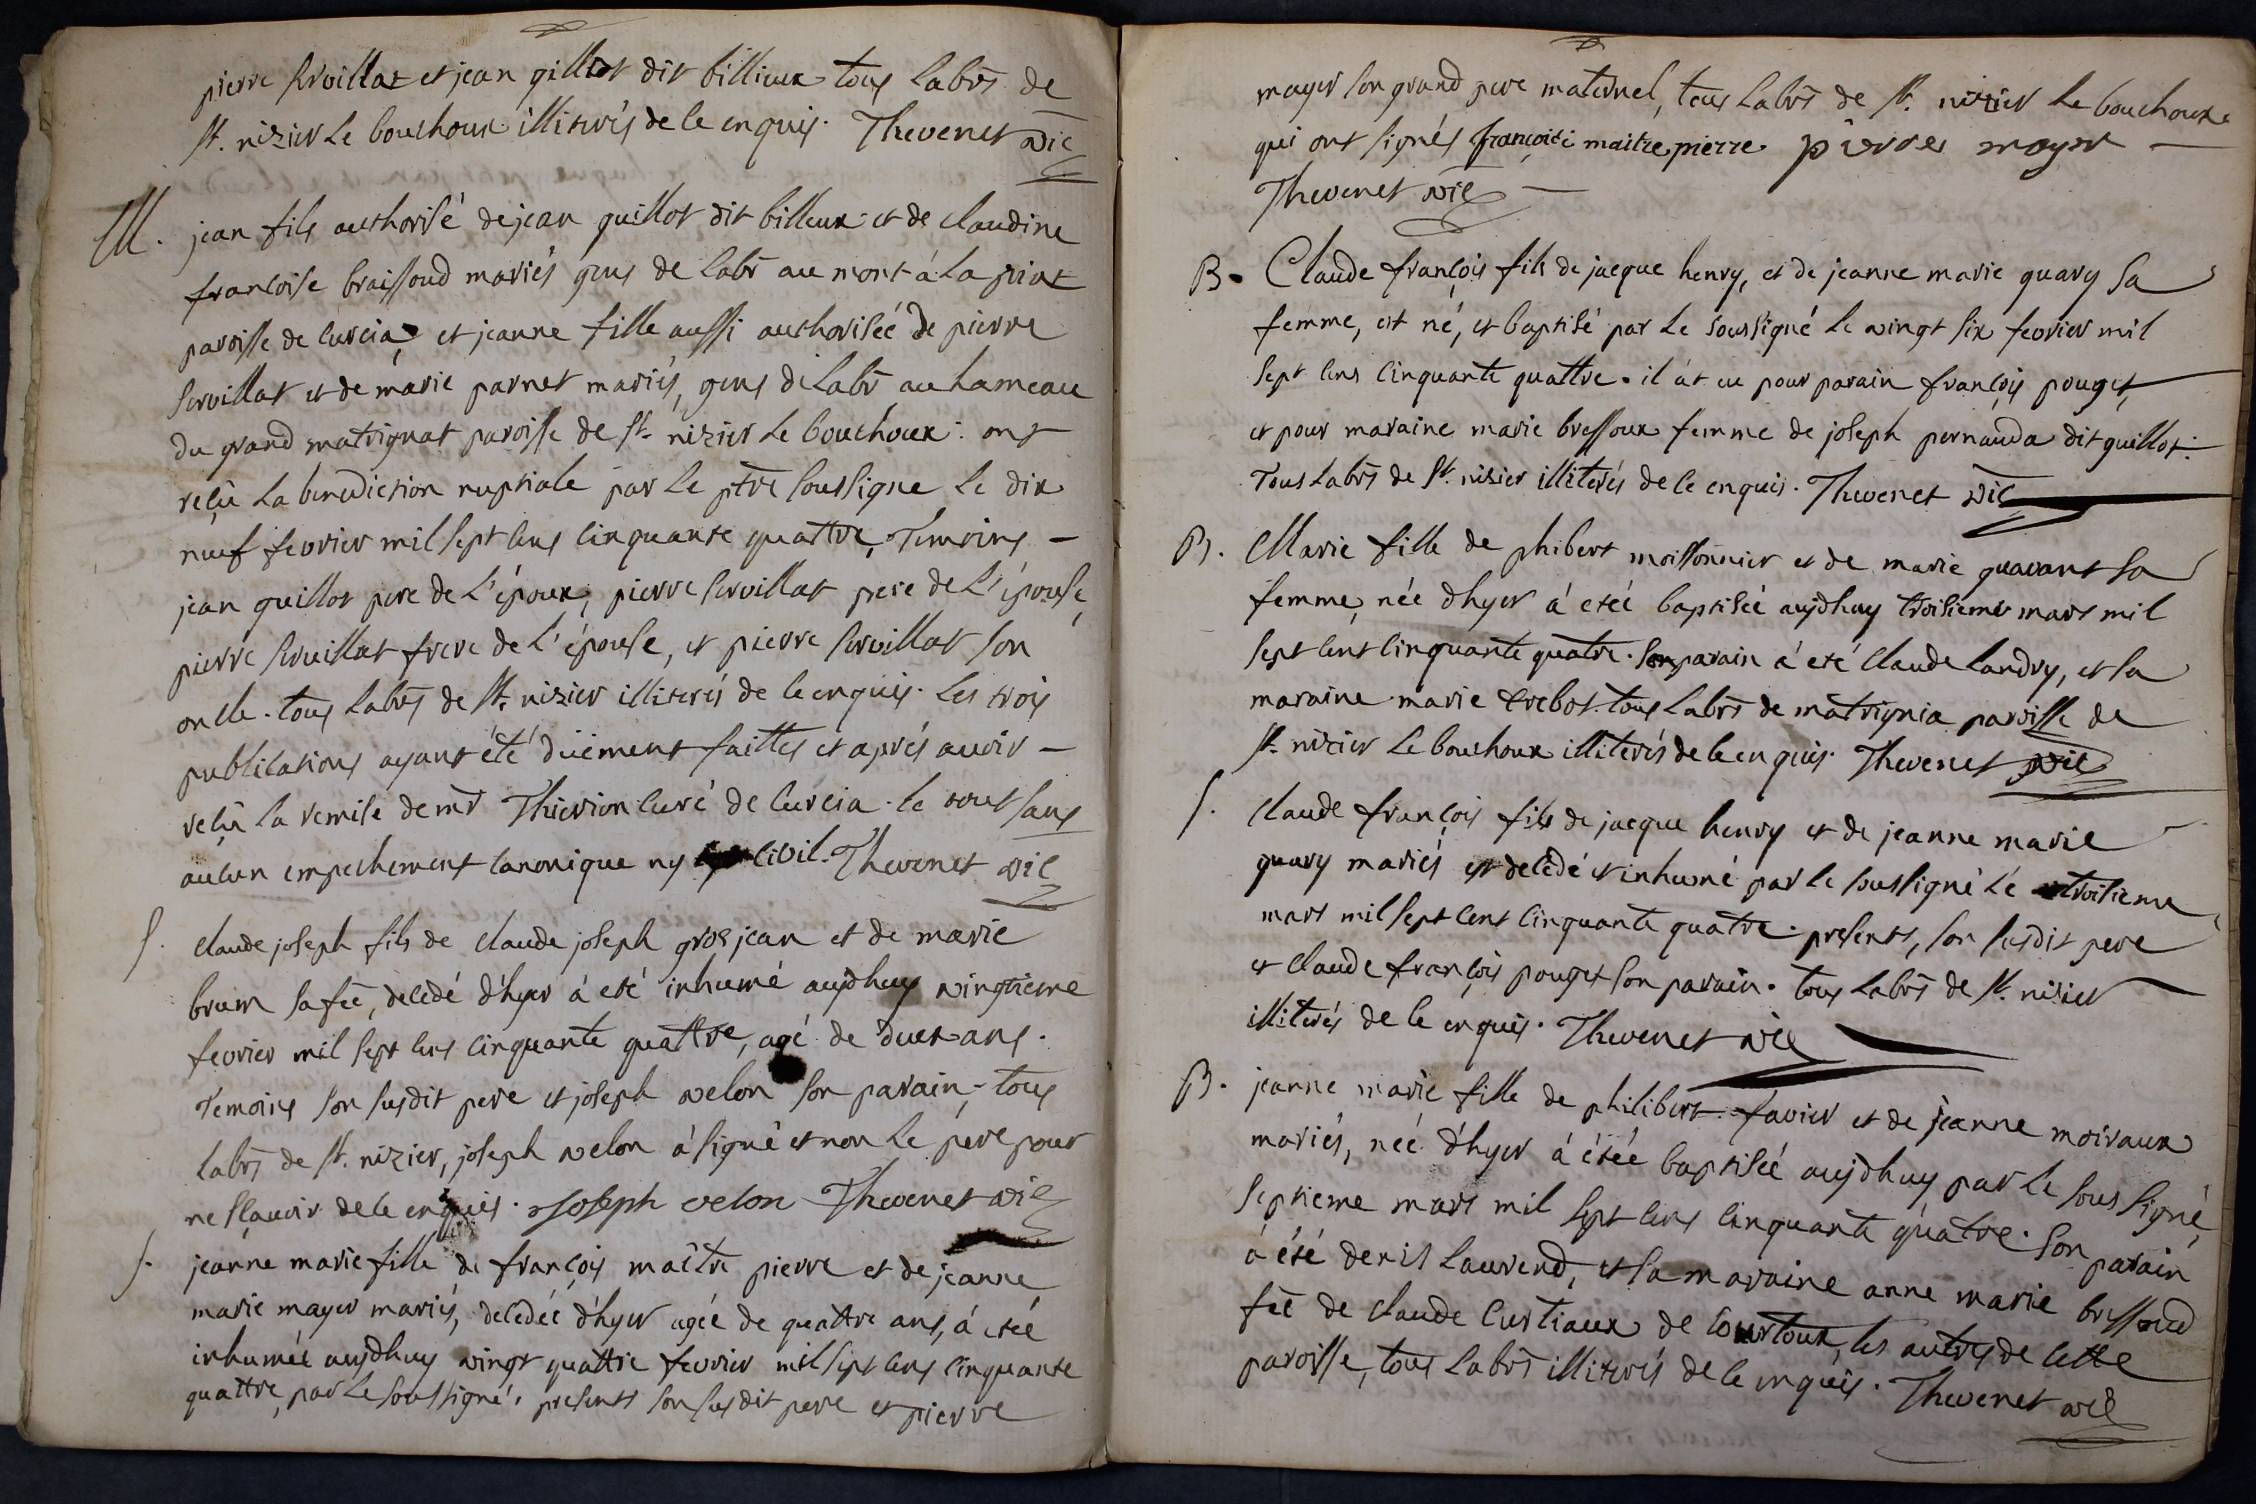 pierre servillat et jean gillot dit billiux tous labrs de
st. nizier le bouchoux illiterés de ce enquis. Thevenet vic
M. jean fils authorisé de jean guillot dit billeux et de claudine
francoise braissoud mariés gens de labr au mont à la
paroisse de curcia, et jeanne fille aussi authorisée de pierre
servillat et de marie parnet mariés, gens de labr au hameau
du grand matrignat paroisse de st. nizier le bouchoux. ont
reçû la benediction nuptiale par le ptre soussigne le dix
neuf fevrier mil sept cens cinquante quattre, Temoins –
jean guillot pere de l'époux, pierre servillat pere de l'épouse,
pierre servillat frere de l'épouse, et pierre servillat son
oncle. tous labrs de st. nizier illiterés de ce enquis. les trois
publications ayant été düement faittes et aprés avoir –
reçû la remise de mr Thievion curé de curcia. le tout sans
aucun empechement canonique ny civil. Thevenet vic
S. claude joseph fils de claude joseph grosjean et de marie
brum sa fē, decedé d'hyer à eté inhumé aujdhuy vingtieme
fevrier mil sept cens cinquante quattre, agé de ans.
Temoins son susdit pere et joseph velon son parain, tous
labrs de st. nizier, joseph velon à signé et non le pere pour
ne sçavoir de ce enquis. joseph velon Thevenet vic
S. jeanne marie fille de françois maître pierre et de jeanne
marie mayer mariés, decedée d'hyer agée de quattre ans, à etée
inhumée aujdhuy vingt quattre fevrier mil sept cens cinquante
quattre, par le soussigné, presents son susdit pere et pierre
mayer son grand pere maternel, tous labrs de st. nizier le bouchoux
qui ont signés françoi maitrepierre pierre mayer –
Thevenet vic –
B. Claude françois fils de jacque henry, et de jeanne marie quary sa
femme, est né, et baptisé par le soussigné le vingt six fevrier mil
sept cens cinquante quattre. il àt eu pour parain françois pouget,
et pour maraine marie bressoux femme de joseph pernauda dit guillot.
Tous labrs de st. nizier illiterés de ce enquis. Thevenet vic
B. Marie fille de phibert moissonnier et de marie quavant sa
femme, née d'hyer à etée baptisée aujdhuy troisieme mars mil
sept cent cinquante quatre. son parain à eté claude landry, et sa
maraine marie trebot. tous labrs de matrignia paroisse de
st. nizier le bouchoux illiterés de ce enquis. Thevenet vic
S. claude françois fils de jacque henry et de jeanne marie
quary mariés est decedé et inhumé par le soussigné le troisieme
mars mil sept cent cinquante quatre. presents, son susdit pere
et claude françois pouget son parain. tous labrs de st. nizier
illiterés de ce enquis. Thevenet vic
B. jeanne marie fille de philibert favier et de jeanne moiraux
mariés, née d'hyer à étée baptisée aujdhuy par le sous signé,
septieme mars mil sept cens cinquante quatre. son parain
à été denis laurend, et sa maraine anne marie bressoud
fē de claude curtiaux de courtoux, les autres de cette
paroisse, tous labrs illiterés de ce enquis. Thevenet vic